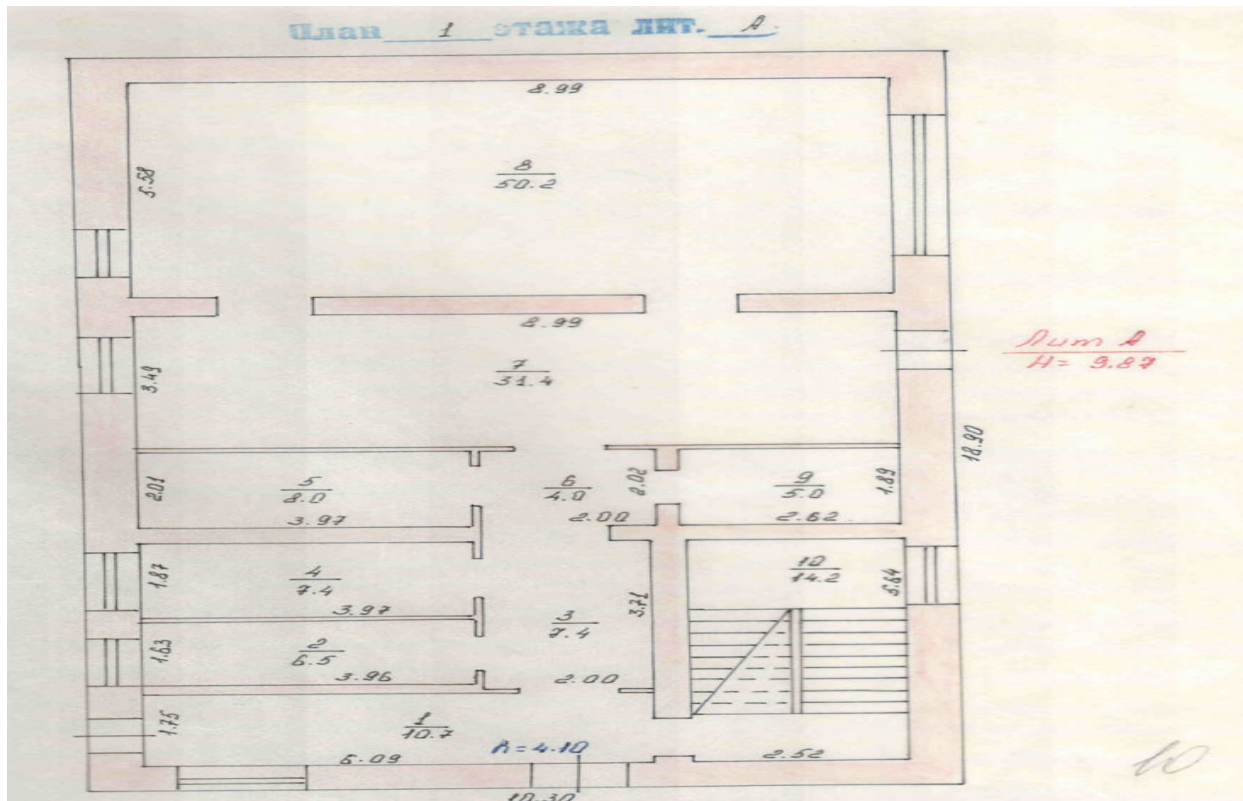 План 1 этажа лит. А
8.99
5.58
8
50.2
8.99
3.49
7
31.4
Лит А
H= 9.87
18.90
2.01
5
8.0
3.97
6
4.0
2.02
2.00
9
5.0
1.89
2.62
1.87
4
7.4
3.97
10
14.2
5.64
3.71
3
7.4
1.63
2
6.5
3.96
2.00
1.75
1
10.7
h=4.10
6.09
2.52
10.30
10